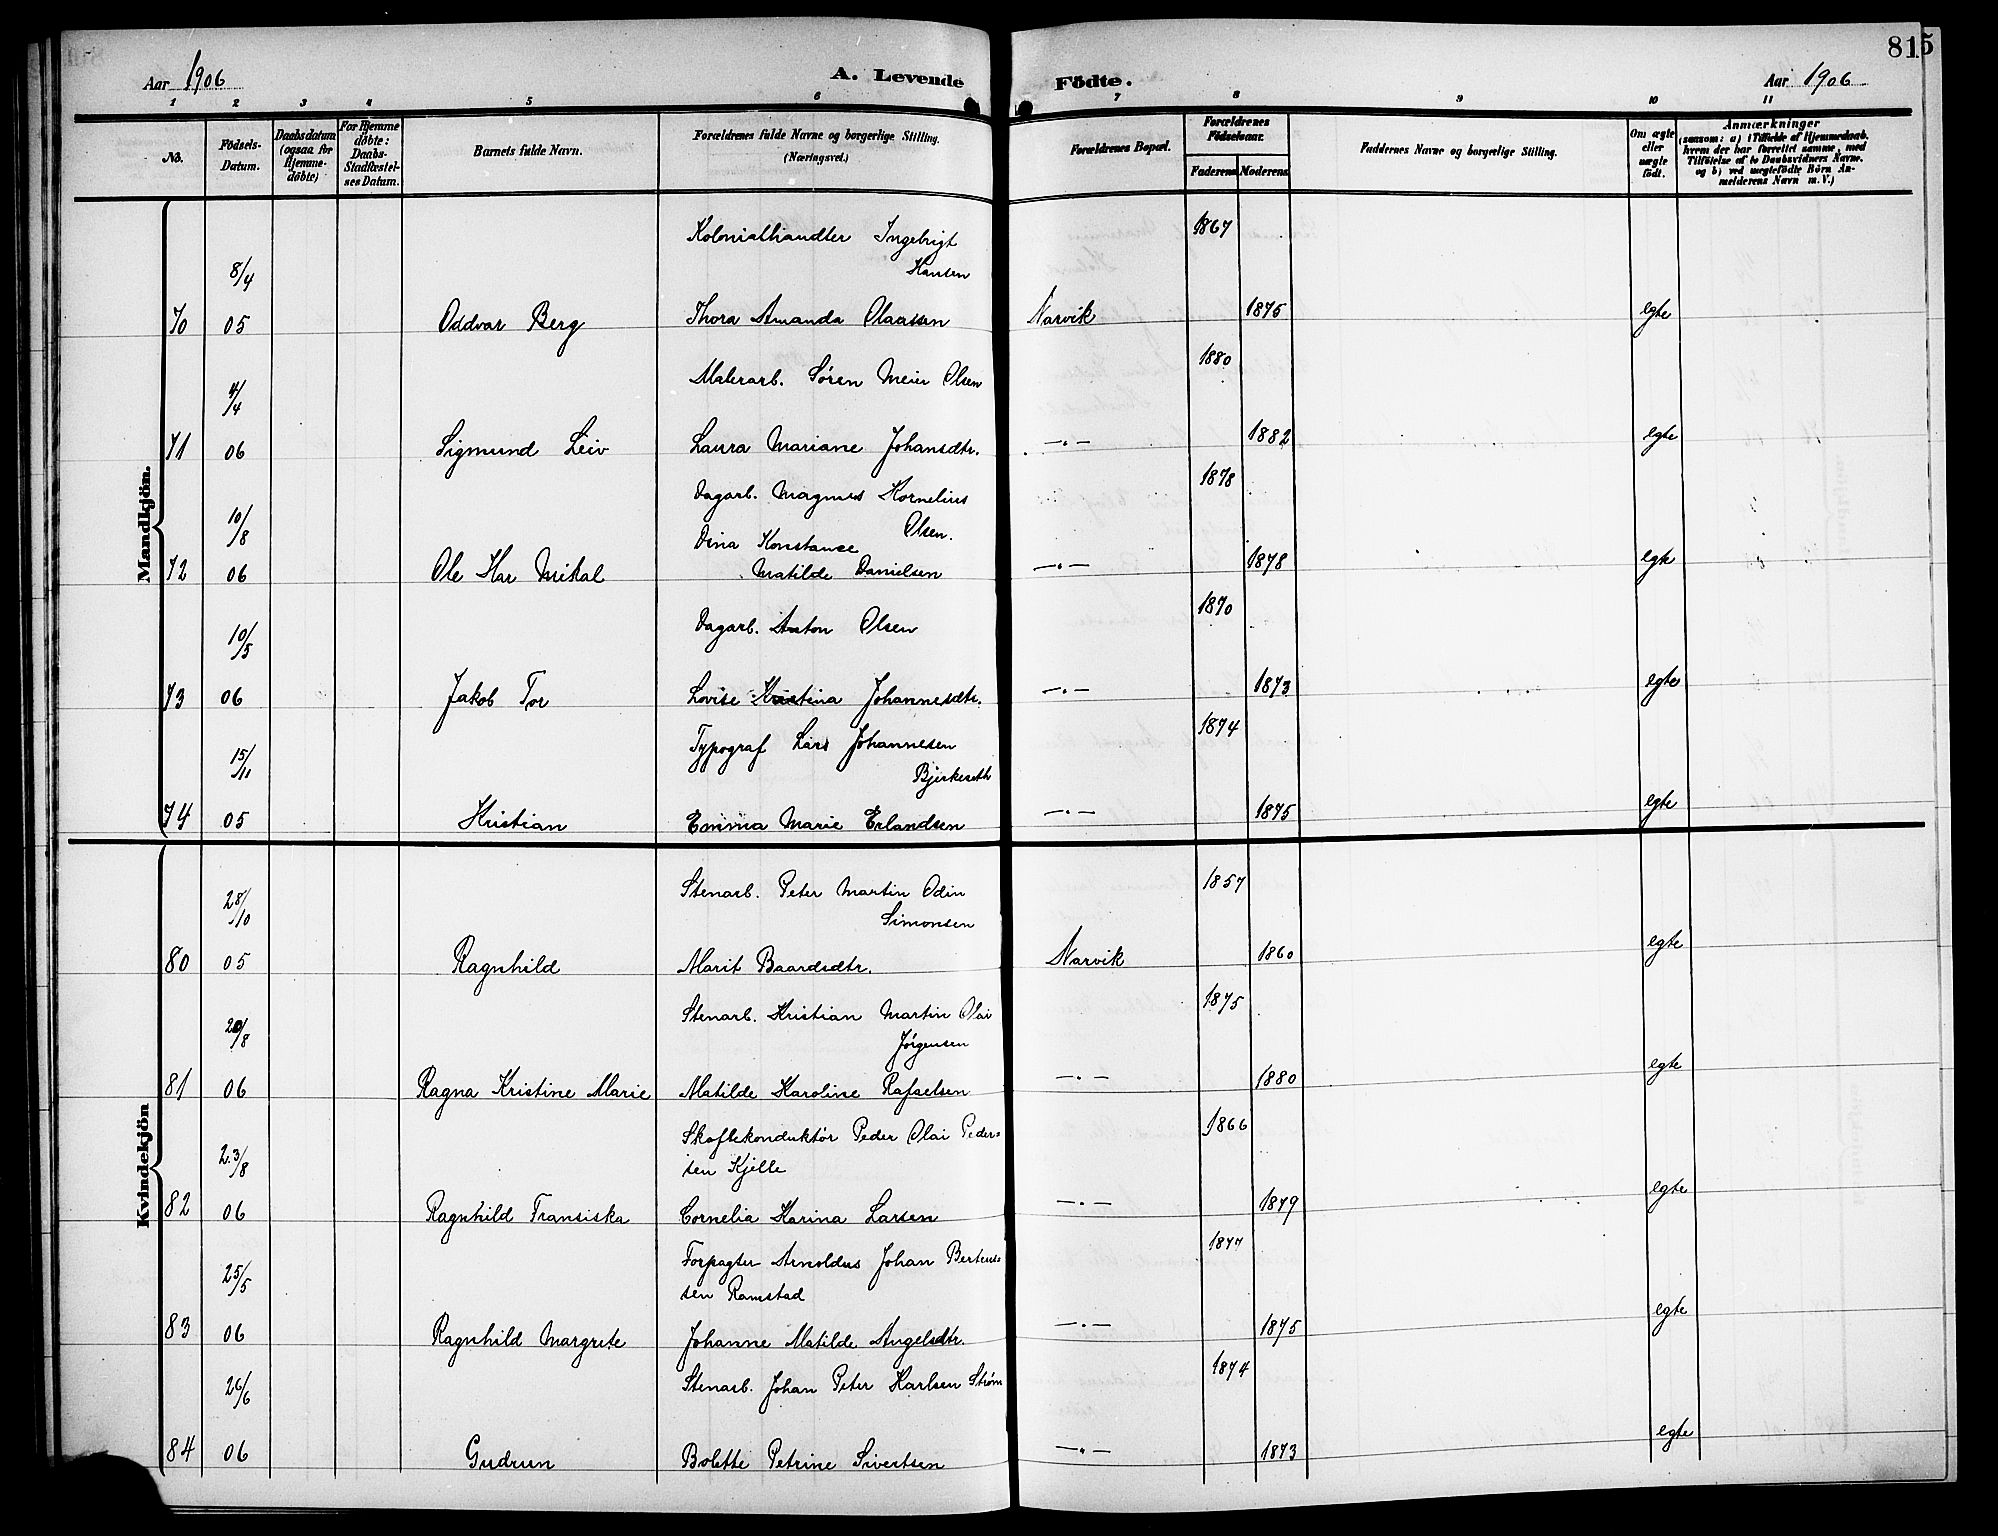 815
Aar 1906
A. Levende Fødte.
Aar 1906
1 2 3 4 5 6 7 8 9 10 11
No.
Fødsels-
Datum.
Daabsdatum
(ogsaa for
Hjemme-
døbte)
For Hjemme
døbte:
Daabs-
Stadfæstel-
ses Datum.
Barnets fulde Navn.
Forældrenes fulde Navne og borgerlige Stilling.
(Næringsvei.)
Forældrenes Bopæl.
Forældrenes
Fødselsaar.
Faderens
Moderens
Faddernes Navne og borgerlige Stilling.
Om ægte
eller
uægte
født.
Anmærkninger
(saasom: a) i Tilfælde af Hjemmedaab,
hvem der har forrettet samme, med
Tilføielse af to Daabsvidners Navne.
og b) ved uægtefødte Børn An-
melderens Navn m. V.)
Mandkjön.
Kolonialhandler Ingebrigt 1867
8/4 Hansen
70 05 Oddvar Berg Thora Amanda Olaussen Narvik 1875 egte
Malerarb. Søren Meier Olsen 1880
4/4
71 06 Sigmund Leiv Laura Mariane Johansdtr. —"— 1882 egte
Dagarb. Magnus Kornelius 1878
10/8 Olsen.
Dina Konstance
72 06 Ole Kar Mikal Matilde Danielsen —"— 1878 egte
Dagarb. Anton Olsen 1870
10/5
73 06 Jakob Tor Lovise Kristina Johannesdtr. —"— 1873 egte
Typograf Lars Johannesen 1874
15/11 Bjerkeseth
74 05 Kristian Emma Marie Erlandsen —"— 1875 egte
Kvindekjön
Stenarb. Peter Martin Odin 1857
28/10 Simonsen
80 05 Ragnhild Marit Baardsdtr. Narvik 1860 egte
Stenarb. Kristian Martin Olai 1875
20/8 Jørgensen
81 06 Ragna Kristine Marie Matilde Karoline Rafaelsen —"— 1880 egte
Skoftekonduktør Peder Olai Peder- 1866
23/8 sen Kjelle
82 06 Ragnhild Fransiska Cornelia Karina Larsen —"— 1879 egte
Forpagter Arnoldus Johan Berteus- 1877
25/5 sen Ramstad
83 06 Ragnhild Margrete Johanne Matilde Angelsdtr. —"— 1875 egte
Stenarb. Johan Peter Karlsen Strøm 1874
26/6
84 06 Gudrun Bolette Petrine Sivertsen —"— 1873 egte